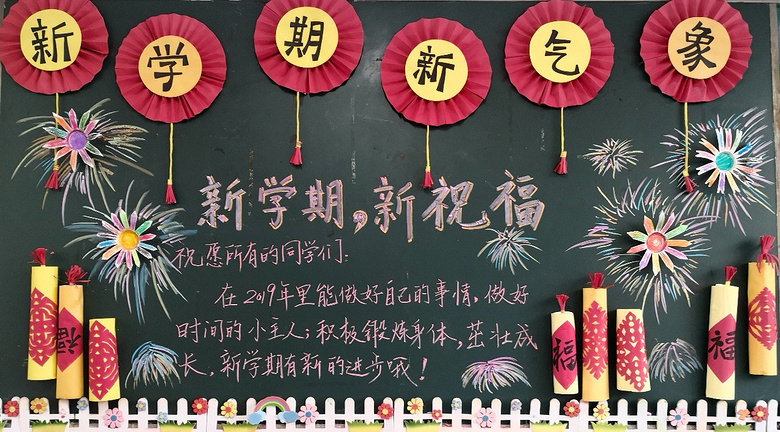 新学期新气象
新学期,新祝福
祝愿所有的同学们:
在2019年里能做好自己的事情,做好
时间的小主人;积极锻炼身体,茁壮成
长,新学期有新的进步哦!
福
福
福